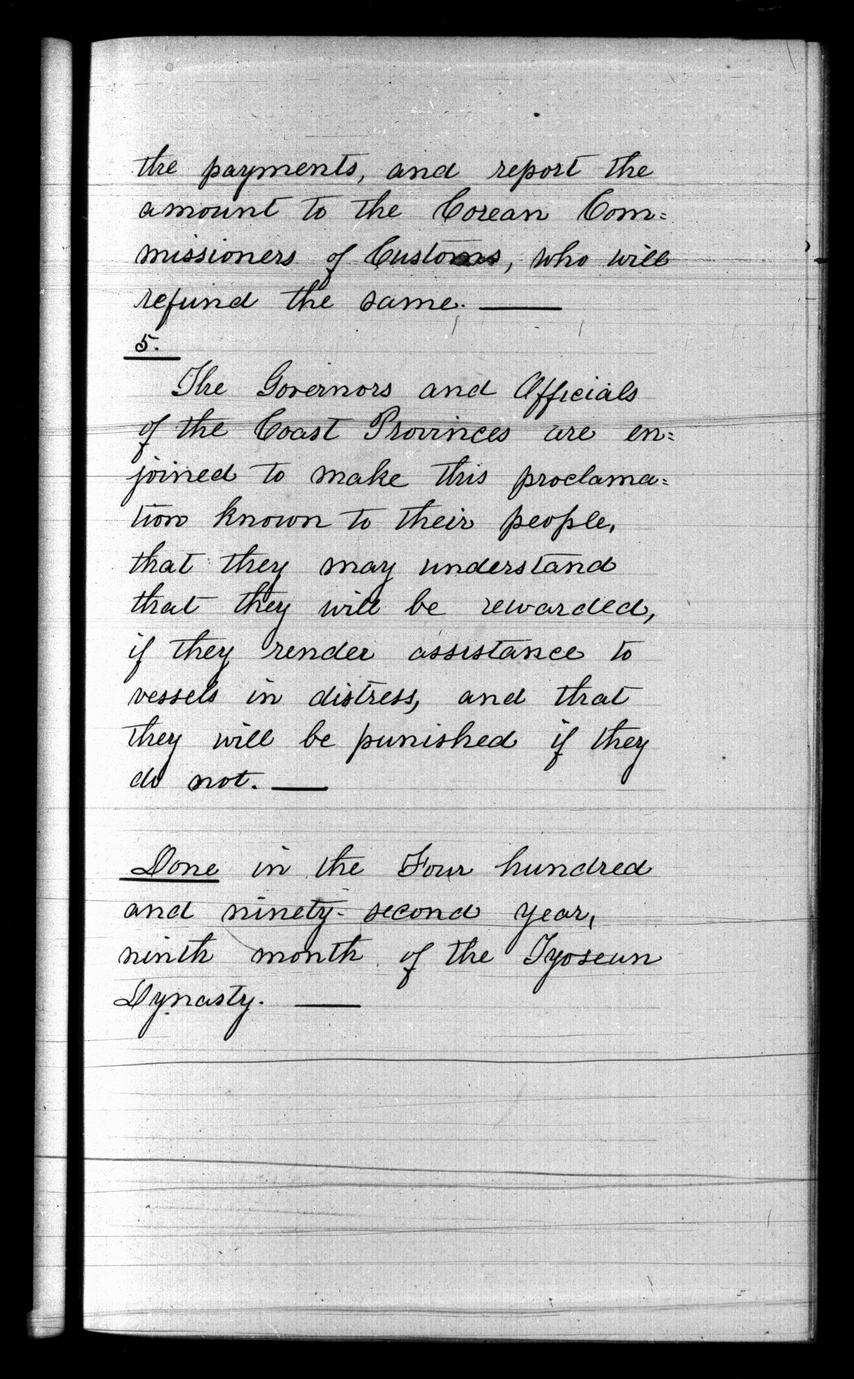 the payments, and report the
amount to the Corean Com=
missioners of Customs, who will
refund the same. ——
5.
The Governors and Officials
of the Coast Provinces are en=
joined to make this proclama=
tion known to their people,
that they may understand
that they will be rewarded,
if they render assistance to
vessels in distress, and that
they will be punished if they
do not. ——
Done in the Four hundred
and ninety-second year,
ninth month of the Tyoseun
Dynasty. ——